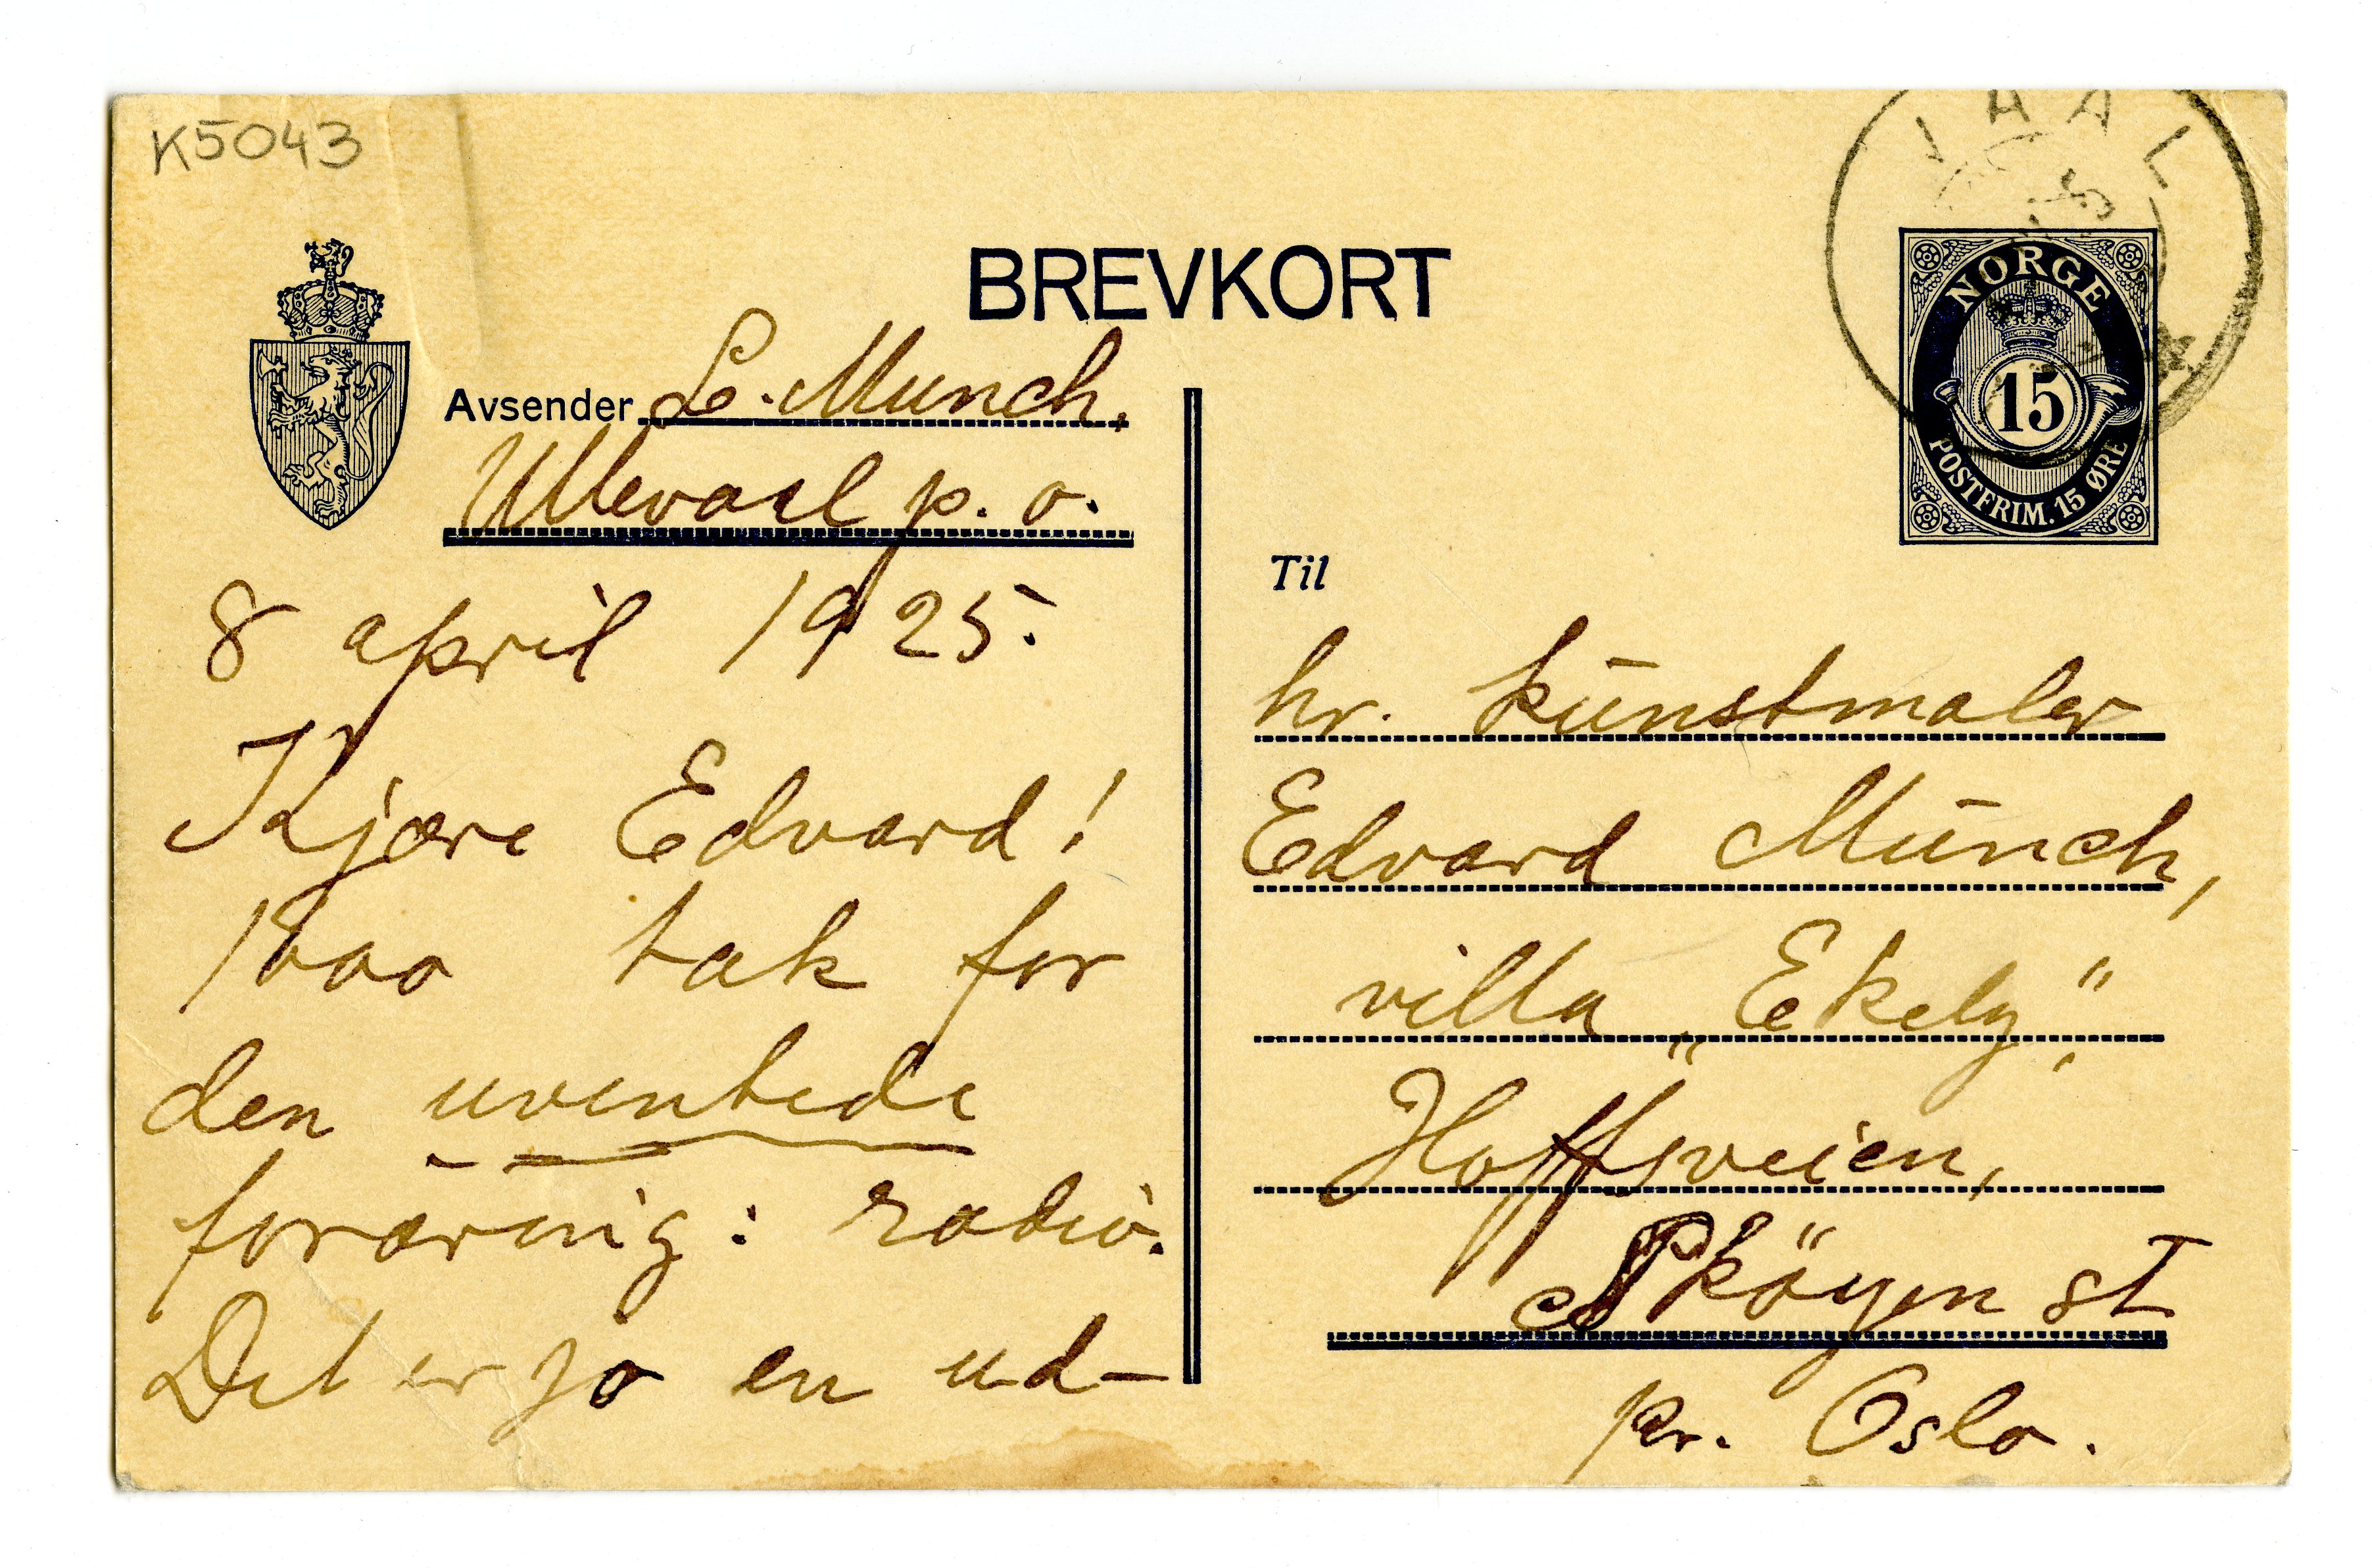 K5043
BREVKORT
Avsender L. Munch,
Ullevaal p. o.
8 april 1925.
Kjære Edvard!
1000 tak for
den uventede
foræring: radio.
Det er jo en ud-
VAAL
NORGE
15
POSTFRIM. 15 ØRE
Til
hr. kunstmaler
Edvard Munch,
villa "Ekely",
Hoffsveien,
Sköyen st
pr. Oslo.